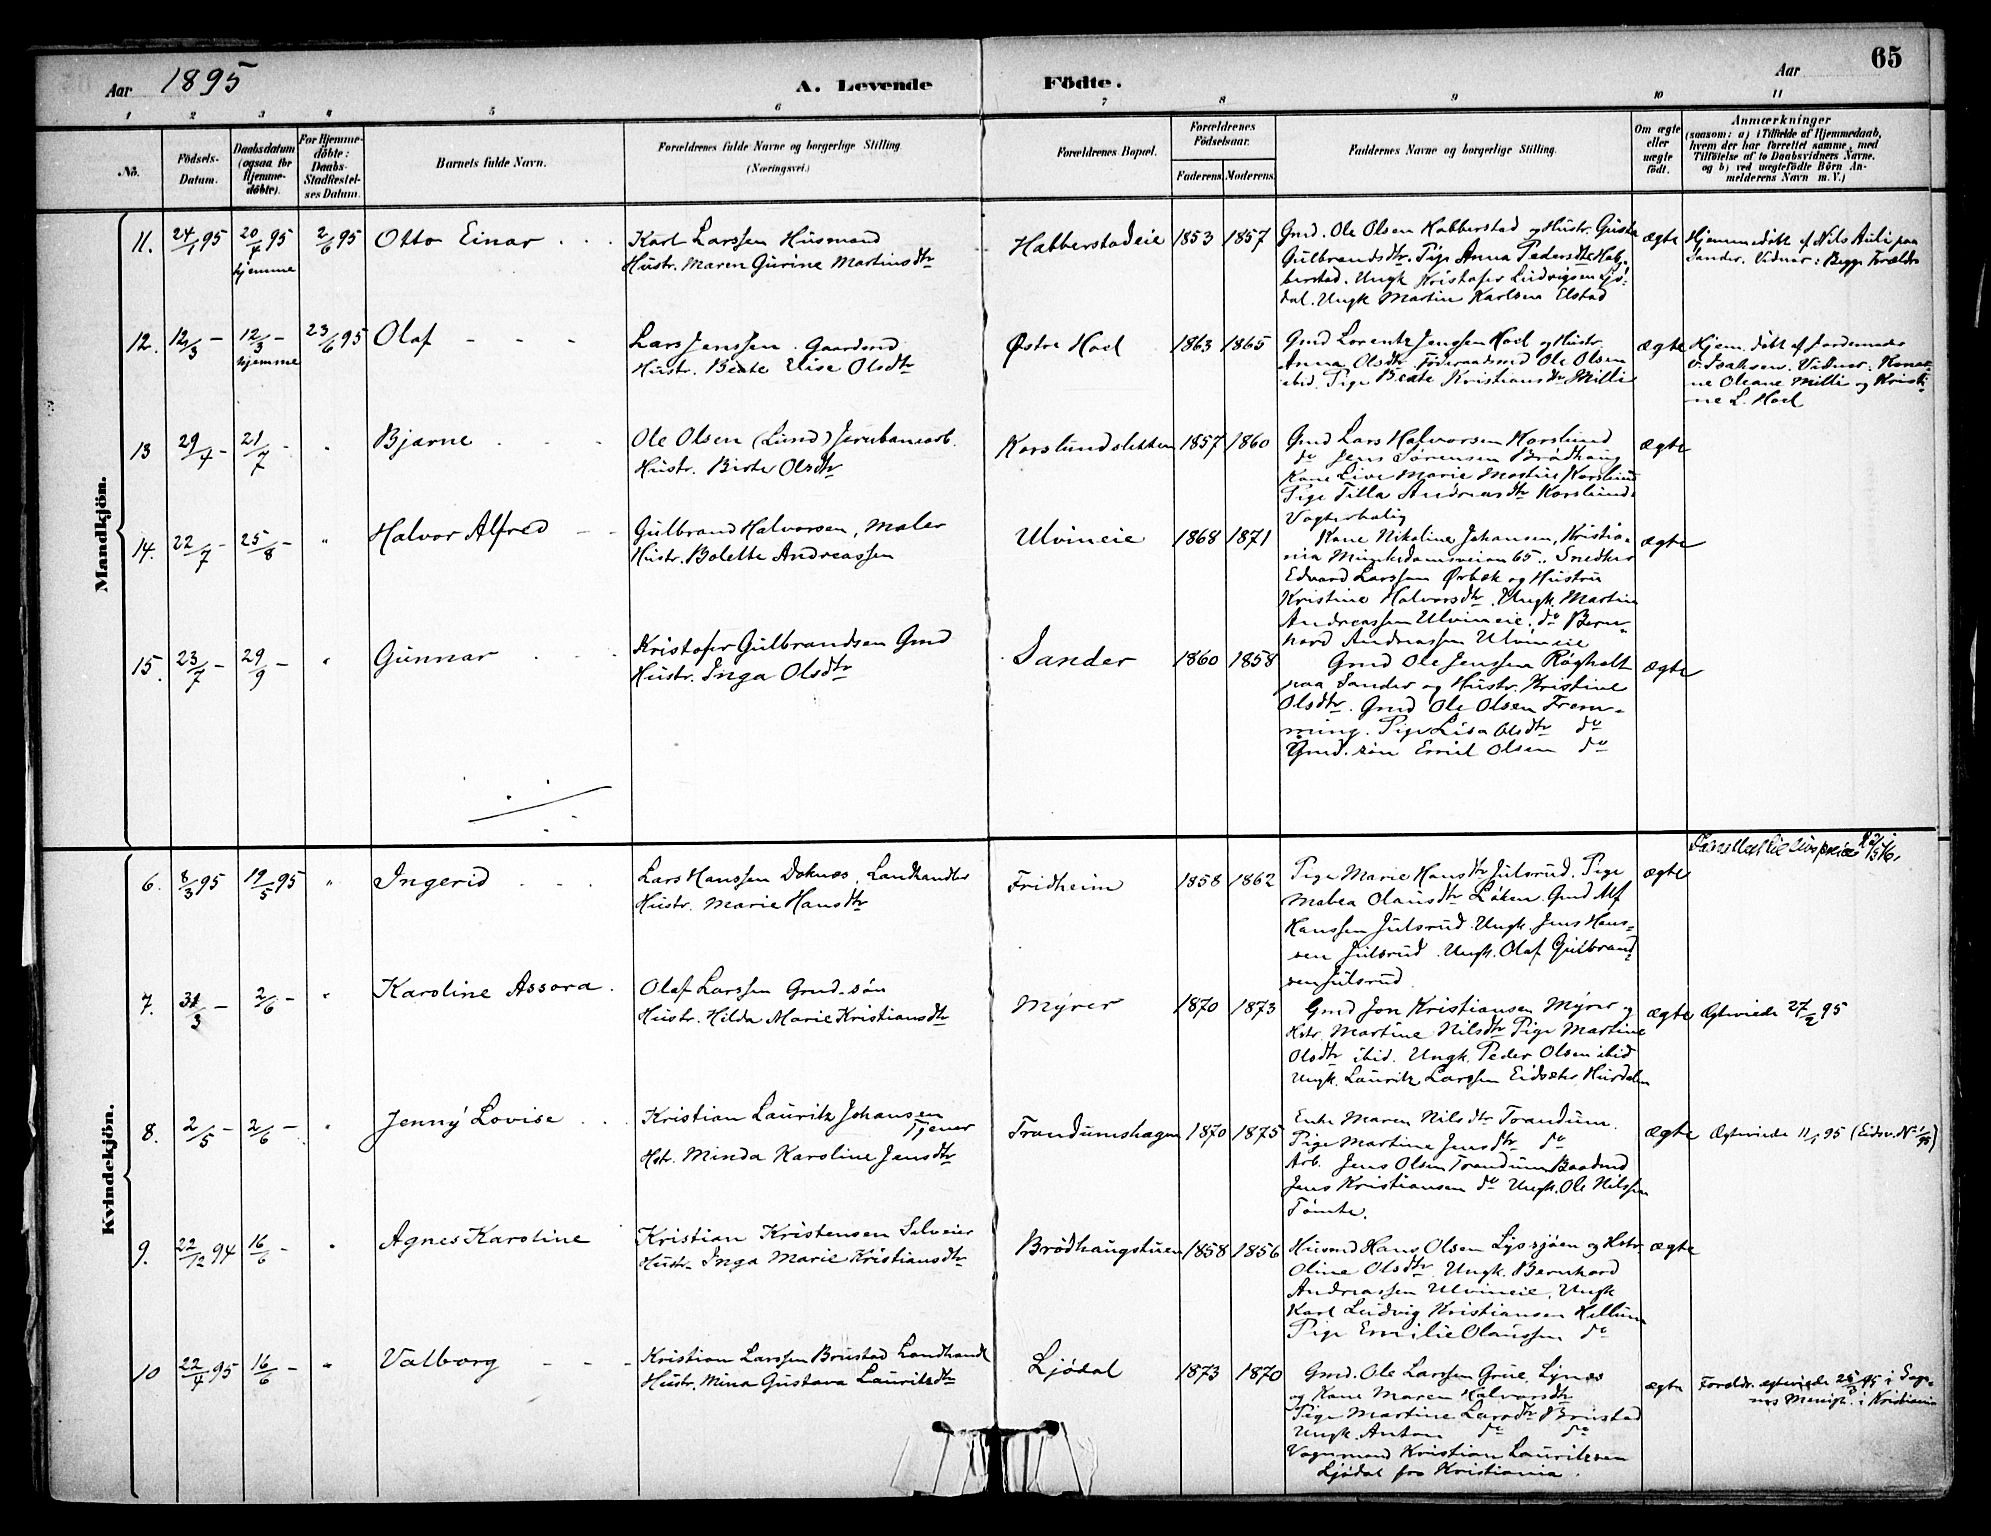 65
Aar 1895
A. Levende Födte.
Aar
1 2 3 4 5 6 7 8 9 10 11
No.
Födsels-Datum.
Daabsdatum (ogsaa for Hjemme-döbte).
For Hjemme-döbte: Daabs-Stadfæstel-ses Datum.
Barnets fulde Navn.
Forældrenes fulde Navne og borgerlige Stilling. (Næringsvei.)
Forældrenes Bopæl.
Forældrenes Födselsaar.
Faderens Moderens
Faddernes Navne og borgerlige Stilling.
Om ægte eller uægte födt.
Anmærkninger
(saasom: a) i Tilfælde af Hjemmedaab,
hvem der har forrettet samme, med
Tilföielse af to Daabsvidners Navne,
og b) ved uægtefödte Börn An-
melderens Navn m. V.)
Mandkjön.
11. 24/1 95 20/4 95 hjemme 2/6 95 Otto Einar
Karl Larssen Husmand
Hustr. Maren Gurine Martinsdtr
Habberstadeie 1853 1857
Gmd. Ole Olsen Habberstad og Hustr. Guste
Gulbrandsdtr. Pige Anna Pedersdtr Hab-
berstad. Ungk Kristofer Ludvigsen Ljö-
dal. Ungk Martin Karlsen Elstad
ægte
Hjemmedöbt af Nils Auli paa
Sander. Vidner: Begge Forældre
12. 12/3 – 12/3 – hjemme 23/6 95 Olaf
Lars Jenssen Gaardmd
Hustr. Beate Elise Olsdtr
Østre Hoel 1863 1865
Gmd Lorentz Jenssen Hoel og Hustr.
Anna Olsdtr. Föderaadsmd Ole Olsen
ibid. Pige Beate Kristiansdtr Milli
ægte
Hjem. döbt af Jordemoder
Isaksen. Vidner:
ne Oleane Milli og Kristi-
ne L. Hoel
13 29/4 – 21/7 – " Bjarne
Ole Olsen (Lund) Jernbanearb.
Hustr. Birte Olsdtr
Korslundslekken 1857 1860
Gmd Lars Halvorsen Korslund
do Jens Sörensen Brödhaug
Kone Live Marie Martin Korslund
Pige Tilla Andreasdtr Korslund
Vogterbolig
ægte
14. 22/7 – 25/8 – " Halvor Alfred
Gulbrand Halvorsen, Maler
Hustr. Bolette Andreassen
Ulvineie 1868 1871
Kone Nikoline Johansen, Kristia-
nia Munkedamsveien 65. Snedker
Edvard Larssen Ørbek og Hustru
Kristine Halvorsdtr. Ungk. Martin
Andreassen Ulvineie. do Bern-
hard Andreassen Ulvineie
ægte
15. 23/7 – 29/9 – " Gunnar
Kristofer Gulbrandsen Gmd
Hustr. Inga Olsdtr
Sander 1860 1858
Gmd Ole Jenssen Røgholt
paa Sander og Hustr. Kristine
Olsdtr. Gmd Ole Olsen Frem-
ming. Pige Lisa Olsdtr do
Gmd. sön Emil Olsen do
ægte
Kvindekjön.
6. 8/3 95 19/5 95 " Ingerid
Lars Hanssen Doknes, Landhandler
Hustr. Marie Hansdtr
Fridheim 1858 1862
Pige Marie Hansdtr Julsrud. Pige
Mabea Olausdtr Løken. Gmd Alf
Hanssen Julsrud. Ungk. Jens Hans-
sen Julsrud. Ungk. Olaf Gulbrand-
sen Julsrud.
ægte
7. 31/3 – 2/6 – " Karoline Assora
Olaf Larssen Gmd.sön
Hustr. Hilda Marie Kristiansdtr
Myrer 1870 1873
Gmd Jon Kristiansen Myrer og
Hstr. Martine Nilsdtr Pige Martine
Olsdtr ibid. Ungk. Peder Olsen ibid
Ungk. Lauritz Larssen Eidsæter Hurdalen
ægte Egteviede 27/2 95
8. 2/5 – 2/6 – " Jenny Lovise
Kristian Lauritz Johansen
Tjener
Hstr. Minda Karoline Jensdtr
Trandumshagen 1870 1875
Enke Maren Nilsdtr Trandum.
Pige Martine Jensdtr do
Arb. Jens Olsen Trandum Baadmd
Jens Kristiansen do Ungk. Ole Nilssen
Tömte.
ægte Egteviede 11/1 95 (Eidsv. No 1/95)
9. 22/12 94 16/6 – " Agnes Karoline
Kristian Kristensen Selveier
Hustr. Inga Marie Kristiansdtr
Brödhaugstuen 1858 1856
Husmd Hans Olsen Lyssjöen og Hstr.
Oline Olsdtr. Ungk. Bernhard
Andreassen Ulvineie, Ungk
Karl Ludvig Kristiansen Hellum
Pige Emilie Olaussen do
ægte
10 22/4 95 16/6 – " Valborg
Kristian Larssen Brustad Landhandl
Hustr. Mina Gustava Lauritzdtr
Ljödal 1873 1870
Gmd. Ole Larssen Grue, Lynes
og Kone Maren Halvorsdtr
Pige Martine Larsdtr Brustad
Ungk. Anton do do
Vognmand Kristian Lauritzsen
Ljödal fra Kristiania.
ægte
Foreldr. egteviede 25/3 95 i Sage-
nes Menigh. i Kristiania